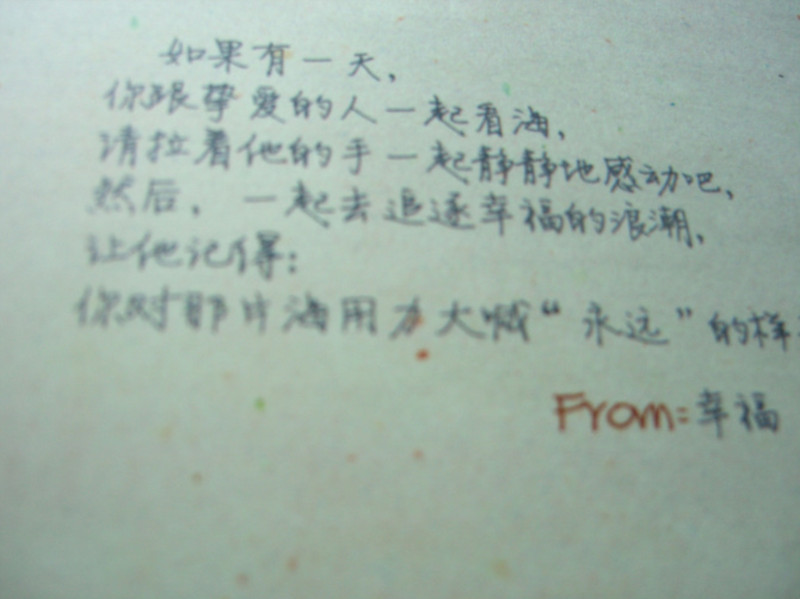 如果有一天，
你跟挚爱的人一起看海，
请拉着他的手一起静静地感动吧，
然后，一起去追逐幸福的浪潮，
让他记得：
你对那片海用力大喊“永远”的样
From：幸福